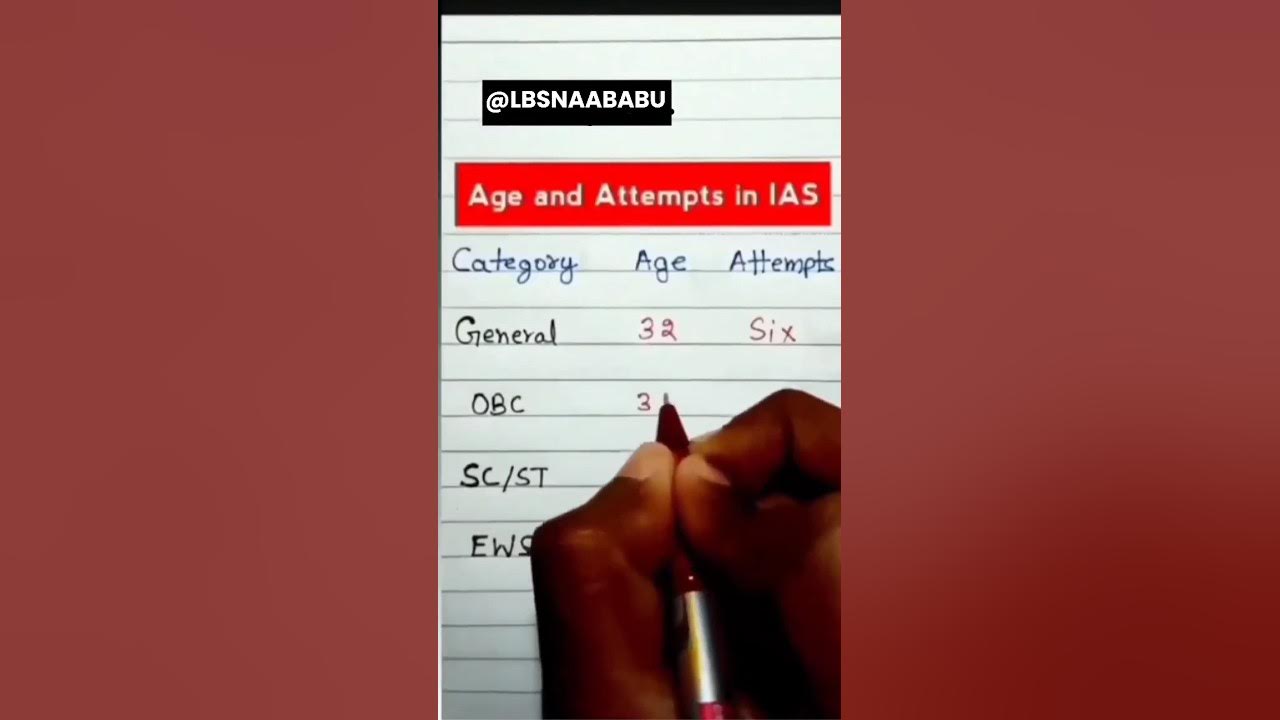 @LBSNAABABU
Age and Attempts in IAS
Category Age Attempts
General 32 Six
OBC 3
SC/ST
EWS